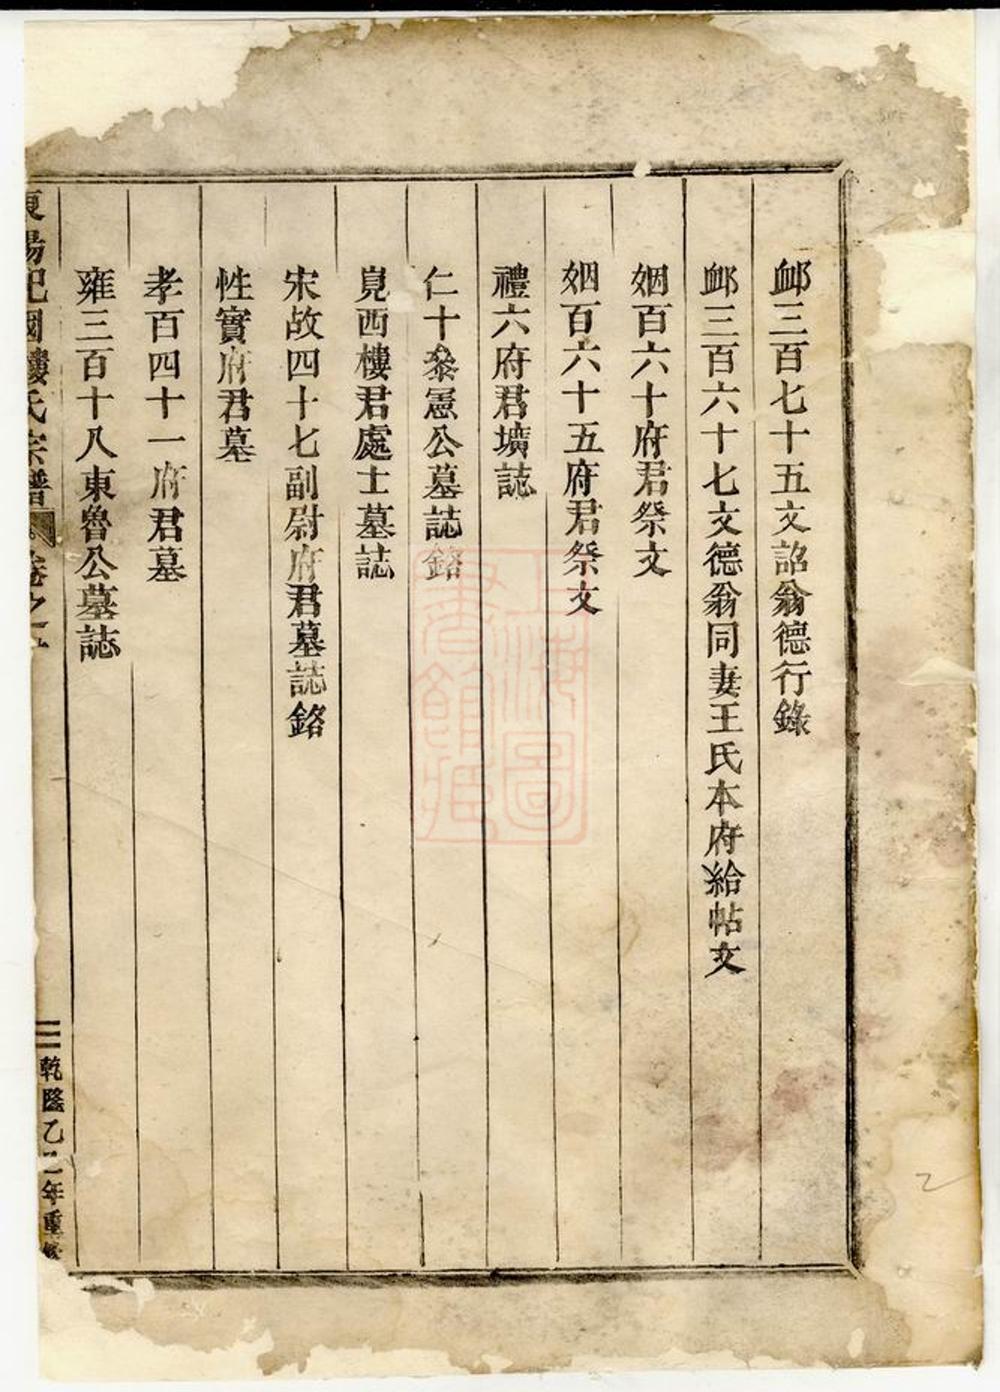 卹三百七十五文韶翁德行錄
卹三百六十七文德翁同妻王氏本府給帖文
姻百六十府君祭文
姻百六十五府君祭文
禮六府君壙誌
仁十叅憲公墓誌銘
見西樓君處士墓誌
宋故四十七副尉府君墓誌銘
性實府君墓
孝百四十一府君墓
雍三百十八東魯公墓誌
東陽杞國樓氏宗譜 卷之
三 乾隆乙 年重修
上海圖書館藏